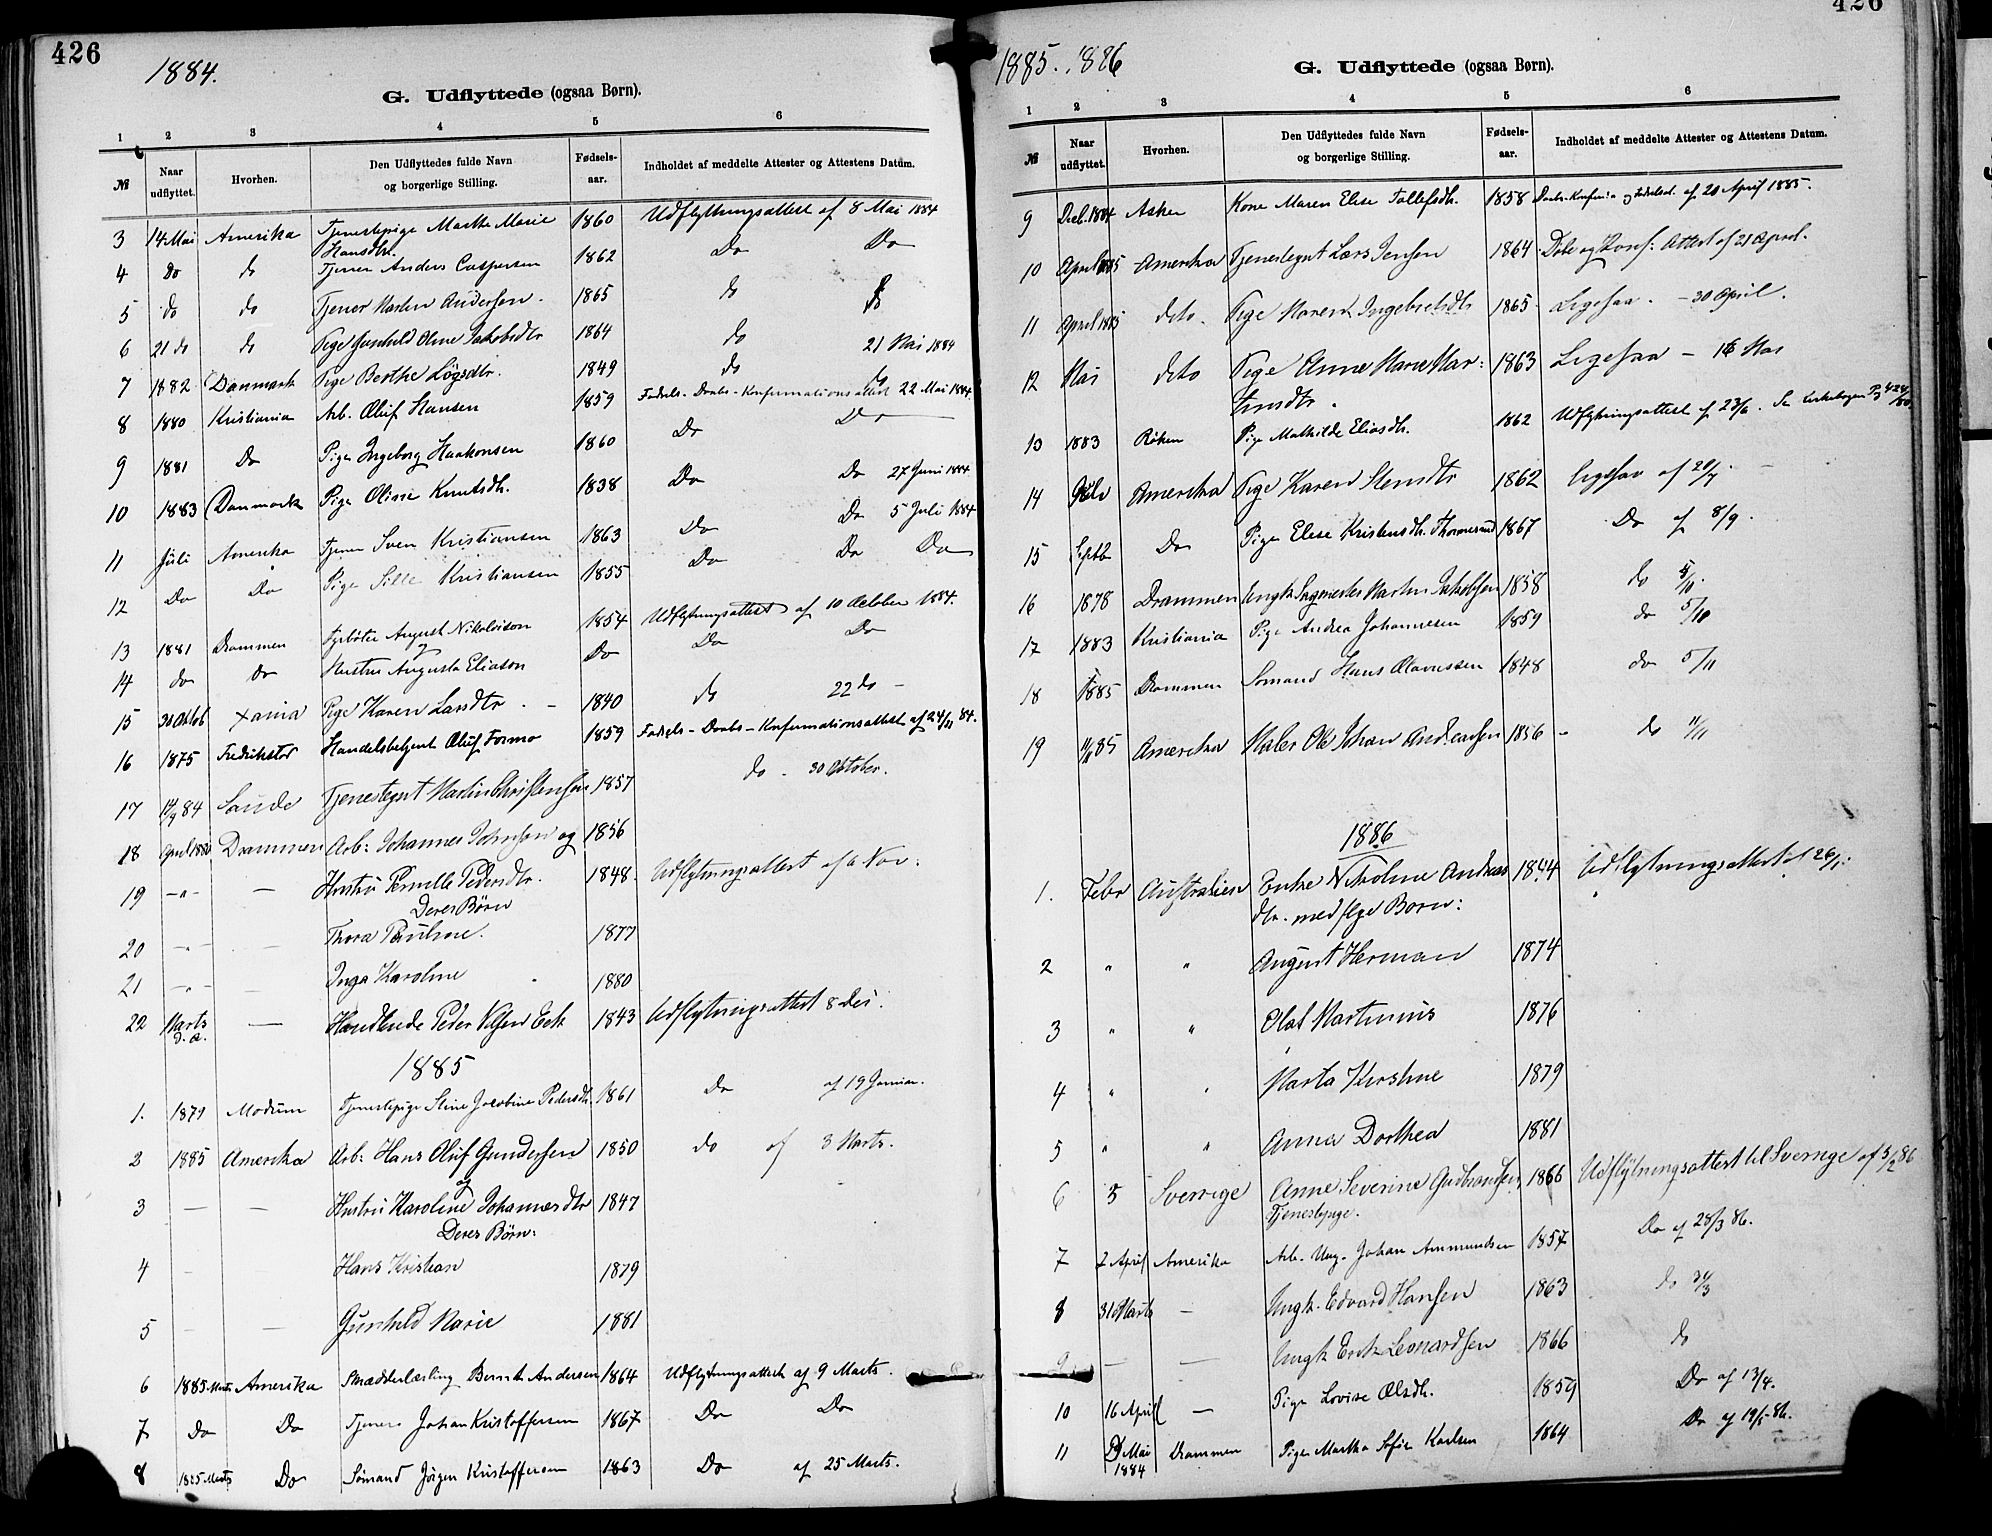 426
1884.
G. Udflyttede (ogsaa Børn).
1 2 3 4 5 6
№ Naar udflyttet. Hvorhen. Den Udflyttedes fulde Navn og borgerlige Stilling. Fødsels-aar. Indholdet af meddelte Attester og Attestens Datum.
3 14 Mai Amerika Tjenestepige Marthe Marie Hansdtr. 1860 Udflytningsattest af 8 Mai 1884
4 do do Tjener Anders Caspersen 1862 Do Do
5 do do Tjener Martin Andersen. 1865 do do
6 21 do do Pige Gunhild Oline Jakobsdtr 1864 do 21 Mai 1884
7 1882 Danmark Pige Berthe 1849 do do
8 1880 Kristiania Arb. Oluf Hansen 1859 Fødsels-Daabs-Konfirmationsattest 22 Mai 1884.
9 1881 Do Pige Ingeborg Haakonsen 1860 Do Do
10 1883 Danmark Pige Olisse Knutsdtr. 1838 Do Do 27 Juni 1884
11 Juli Amerika Tjener Sven Kristiansen 1863 Do Do 5 Juli 1884
12 Do Do Pige Kristiansen 1855 Do Do Do
13 1881 Drammen Fyrbøter August Nikolaison 1854 Udflytningsattest af 10 October 1884.
14 do do Hustru Augusta Eliason Do Do Do
15 20 Oktob Xania Pige Karen Larsdtr. 1840 do 22 do -
16 1875 Fredrikstad Handelsbetjent Oluf Formo 1859 Fødsels-Daabs-Konfirmationsattest af 24/11 84.
17 84 Sande Tjenestegut Martin Christensen 1857 do - 30 Oktober.
18 April 1880 Drammen Arb: Johannes Johnsen og 1856
19 -"- — Hustru Pernille Pedersdtr. 1848. Udflytningsattest af 6 Nov:
Deres Børn
20 -"- — Thora Pauline. 1877
21 -"- — Inga Karoline 1880
22 Marts d. a. — Handlende Peder Nilsen Eek 1843 Udflytningsattest 8 Des.
1885
1. 1879 Modum Tjenestepige Stine Jacobine Pedersdtr. 1861 Do af 19 Januar.
2 1885 Amerika Arb: Hans Oluf Gundersen 1850 do af 3 Marts.
og
3 — — Hustru Karoline Johannesdtr 1847
Deres Børn:
4 - - Hans Kristian 1879
5 - — Gunhild Marie 1881
6 1885 Marts Amerika Skrædderlærling Bernt Andersen 1864 Udflytningsattest af 9 Marts.
7 Do Do Tjener Johan Kristoffersen 1867 Do Do
8 1885 Marts Do Sømand Jørgen Kristoffersen 1863 Do af 25 Marts.
426
1885. 1886
G. Udflyttede (ogsaa Børn).
1 2 3 4 5 6
№ Naar udflyttet. Hvorhen. Den Udflyttedes fulde Navn og borgerlige Stilling. Fødsels-aar. Indholdet af meddelte Attester og Attestens Datum.
9 Decb. 1884 Asker Kone Maren Elise Tollefsdtr. 1858 af 20 April 1885.
10 April 1885 Amerika Tjenestegut Lars Jensen 1864 Dabs og Konf: Attest af 21 April.
11 April 1885 dito. Pige Maren Ingebretsdtr 1865 Ligesaa. - 30 April.
12 Mai dito Pige Anne Marie Mar:tinsdtr. 1863 Ligesaa - 16 Mai
13 1883 Røken Pige Mathilde Eliasdtr. 1862 Udflytningsattest af 23/6. Se Kirkebogen
14 Amerika Pige Karen Stensdtr 1862 ligesaa af 20/7. -
15 Septb Do Pige Elise Kristensdtr. 1867 Do af 8/9.
16 1878 Drammen Ungk. Martin Jakobsen 1858 do
17 1883 Kristiania Pige Andrea Johannesen 1859 do 5/10
18 1885 Drammen Sømand Hans Olavessen 1848 do 5/11
19 85 Amerika Maler Ole Johan Andreassen 1856 - do 11/11
1886
1. Febr Australien Enke Nikoline Andreas 1844 Udflytningsattest af 26/1:
dtr. med flge Børn:
2 " " August Herman 1874
3 " " Olaf Martinius 1876
4 " " Marta Kirstine 1879
5 " " Anna Dorthea 1881
6 5 Sverrige Anne Severine Gudbrandsen, 1866 Udflytningsattest til Sverrige af 5/2 86
Tjenestepige.
7 2 April Amerika Arb. Ung. Johan Ammundsen 1857 Do af 28/3 86.
8 31 Marts — Ungk. Edvard Hansen 1863 do 31/3
9 — — Ungk. Erik Leonardsen 1866 do
10 16 April — Pige Lovise Olsdtr. 1859 Do af 13/4.
11 Mai 1884 Drammen Pige Martha Sofie Karlsen 1864 Do af 19/5 86.